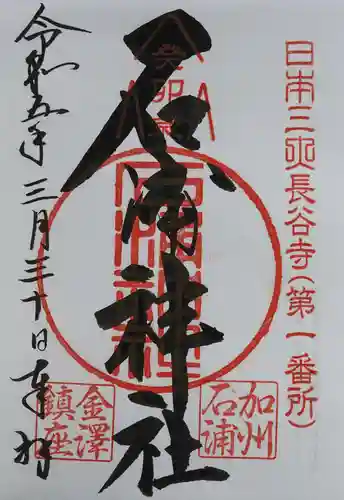 日本三大長谷寺(第一番所)
癸卯
石浦神社
石浦神社
加州
石浦
令和五年三月三十日奉拝
金澤
鎮座